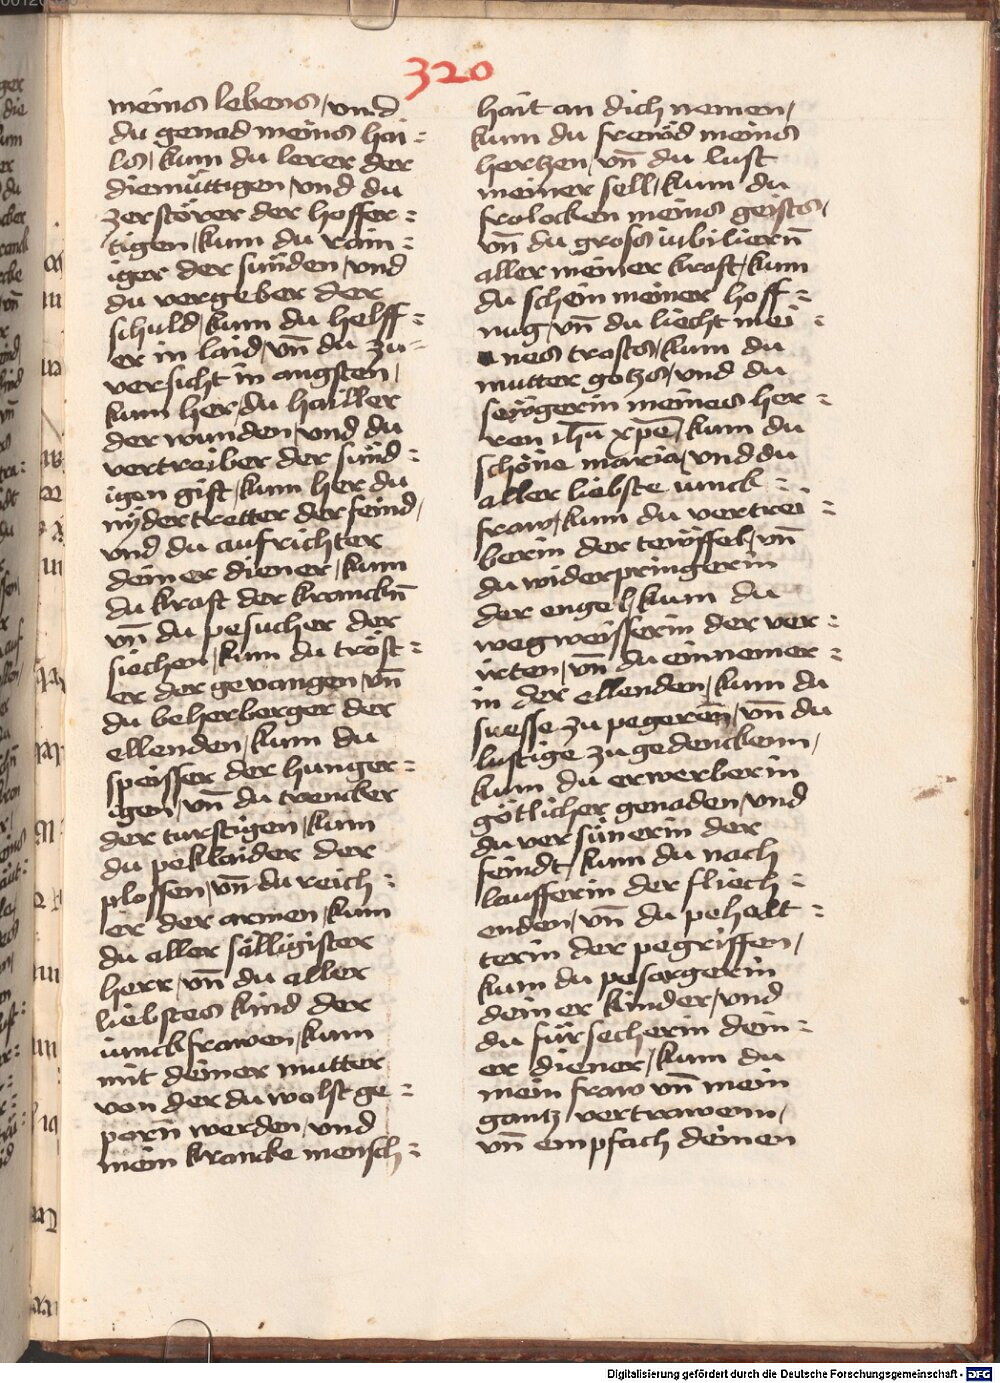 320
meins lebens, und
du genad meins hai-
ls, kum du lerer der
diemüttigen, und du
zerstörer der hoffer-
tigen, kum du rain-
iger der sünden, und
du vergeber der
schuld, kum du helff-
er in laid, vn̄ du zu-
versicht in angsten,
kum her, du hailler
der wunden, und du
vertreiber der sünd-
igen gift, kum her du
nydertretter der feind,
und du aufrichter
deiner diener, kum
du kraft der kranckn̄
vn̄ du pesucher der
siechen, kum du tröst-
er der gevangen, vn̄
du beherberger der
ellenden, kum du
speisser der hunger-
igen, vn̄ du trencker
der turstigen, kum
du peklaider der
plossen, vn̄ du reich-
er der armen, kum
du aller sälligister
herr, vn̄ du aller
liebstes kind der
junckfrawen, kum
mit deiner mutter
von der du wolst ge-
porn̄ werden, und
mein krancke mensch-
hait an dich nemen,
kum du frewd meins
hertzen, vn̄ du lust
meiner sell, kum du
frolocken meins geists,
vn̄ du gross iubiliern̄
aller meiner kraft, kum
du schein meiner hoff-
nug, vn̄ du liecht mei-
nes trosts, kum du
mutter gotzs, und du
sewgerin meines her-
ren ihū xpē, kum du
schöne maria, und du
aller liebste iunck-
fraw, kum du vertrei-
berin der tewffel, vn̄
du widerpringerin
der engel, kum du
wegweisserin der ver-
irten, vn̄ du einnemer-
in der ellenden, kum du
suesse zu pegeren̄, vn̄ du
lustige zu gedenckenn,
kum du erwerberin
götlicher genaden, und
du versünerin der
feindt, kum du nach
laufferin der fliech-
enden, vn̄ du pehalt-
terin der pegriffen,
kum du pesorgerin
deiner kinder, und
du fürsecherin dein-
er diener, kum du
mein fraw vn̄ mein
gantz vertrawenn,
vn̄ empfach deinen
Digitalisierung gefördert durch die Deutsche Forschungsgemeinschaft - DFG